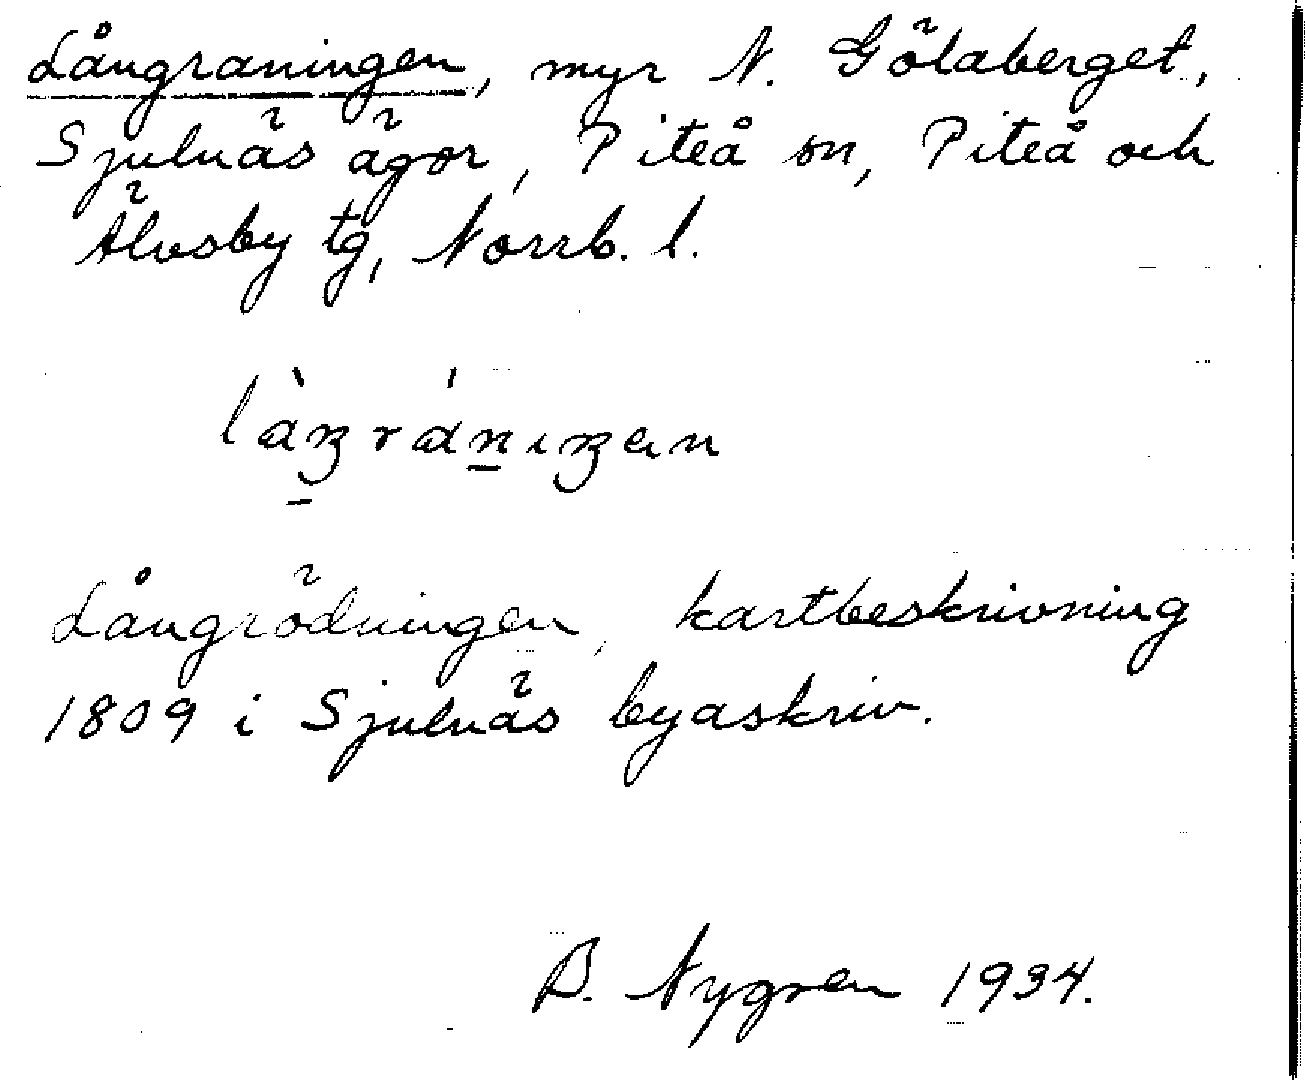 Långraningen, myr N. Gölaberget,
Sjulnäs ägor, Piteå sn, Piteå och
Älvsby tg, Norrb. l.
Långrödningen, kartbeskrivning
1809 i Sjulnäs byaskriv.
B. Nygren 1934.